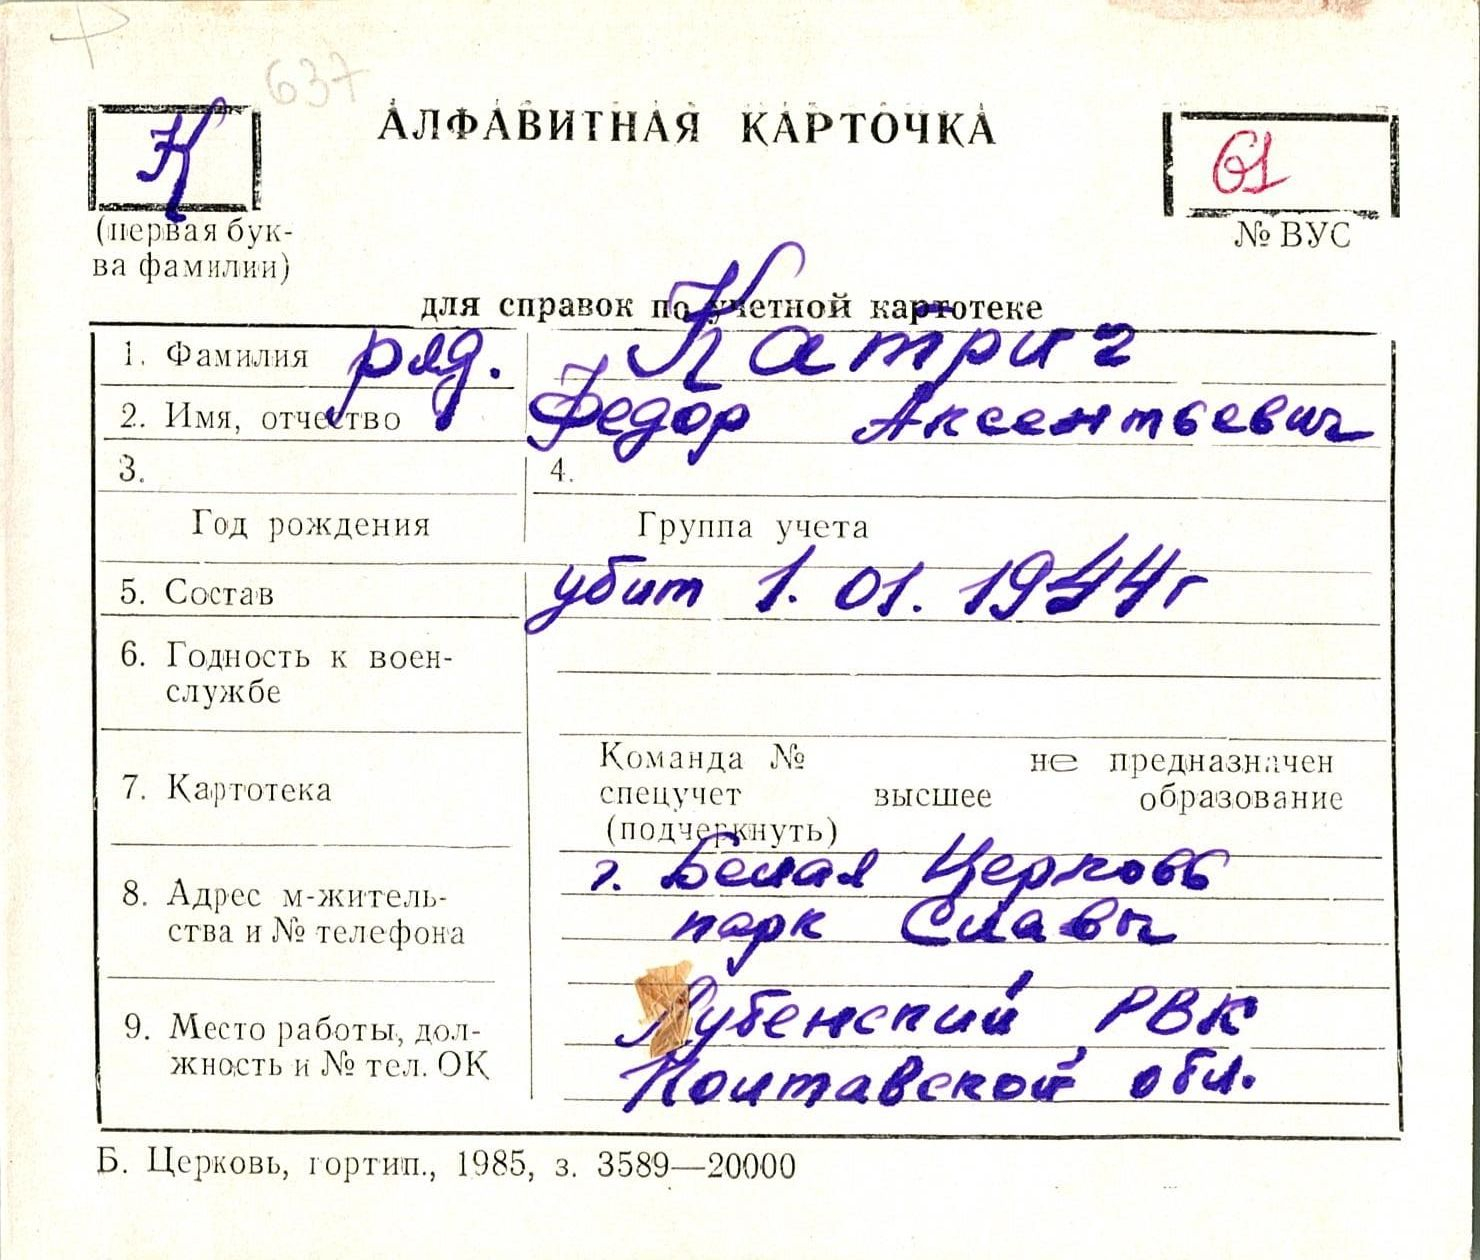 637
АЛФАВИТНАЯ КАРТОЧКА
К
61
(первая бук-
ва фамилии)
№ ВУС
для справок по учетной картотеке
1. Фамилия ряд. Катрич
2. Имя, отчество Федор Аксентьевич
3. 4.
Год рождения Группа учета
5. Состав убит 1.01.1944г
6. Годность к воен-
службе
Команда № не предназначен
7. Картотека спецучет высшее образование
(подчеркнуть)
г. Белая Церковь
8. Адрес м-житель-
ства и № телефона
парк Славы
9. Место работы, дол-
жность и № тел. ОК
Лубенский РВК
Полтавской обл.
Б. Церковь, гортип., 1985, з. 3589—20000